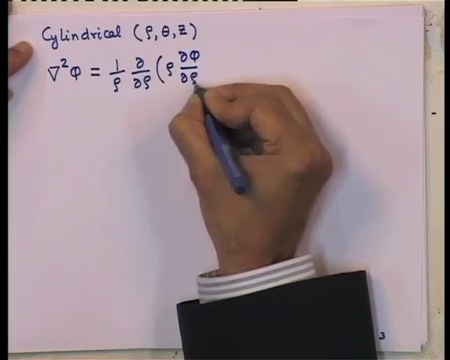 Cylindrical (ρ, θ, z)
∇²φ = 1/ρ ∂/∂ρ (ρ ∂φ/∂ρ
3